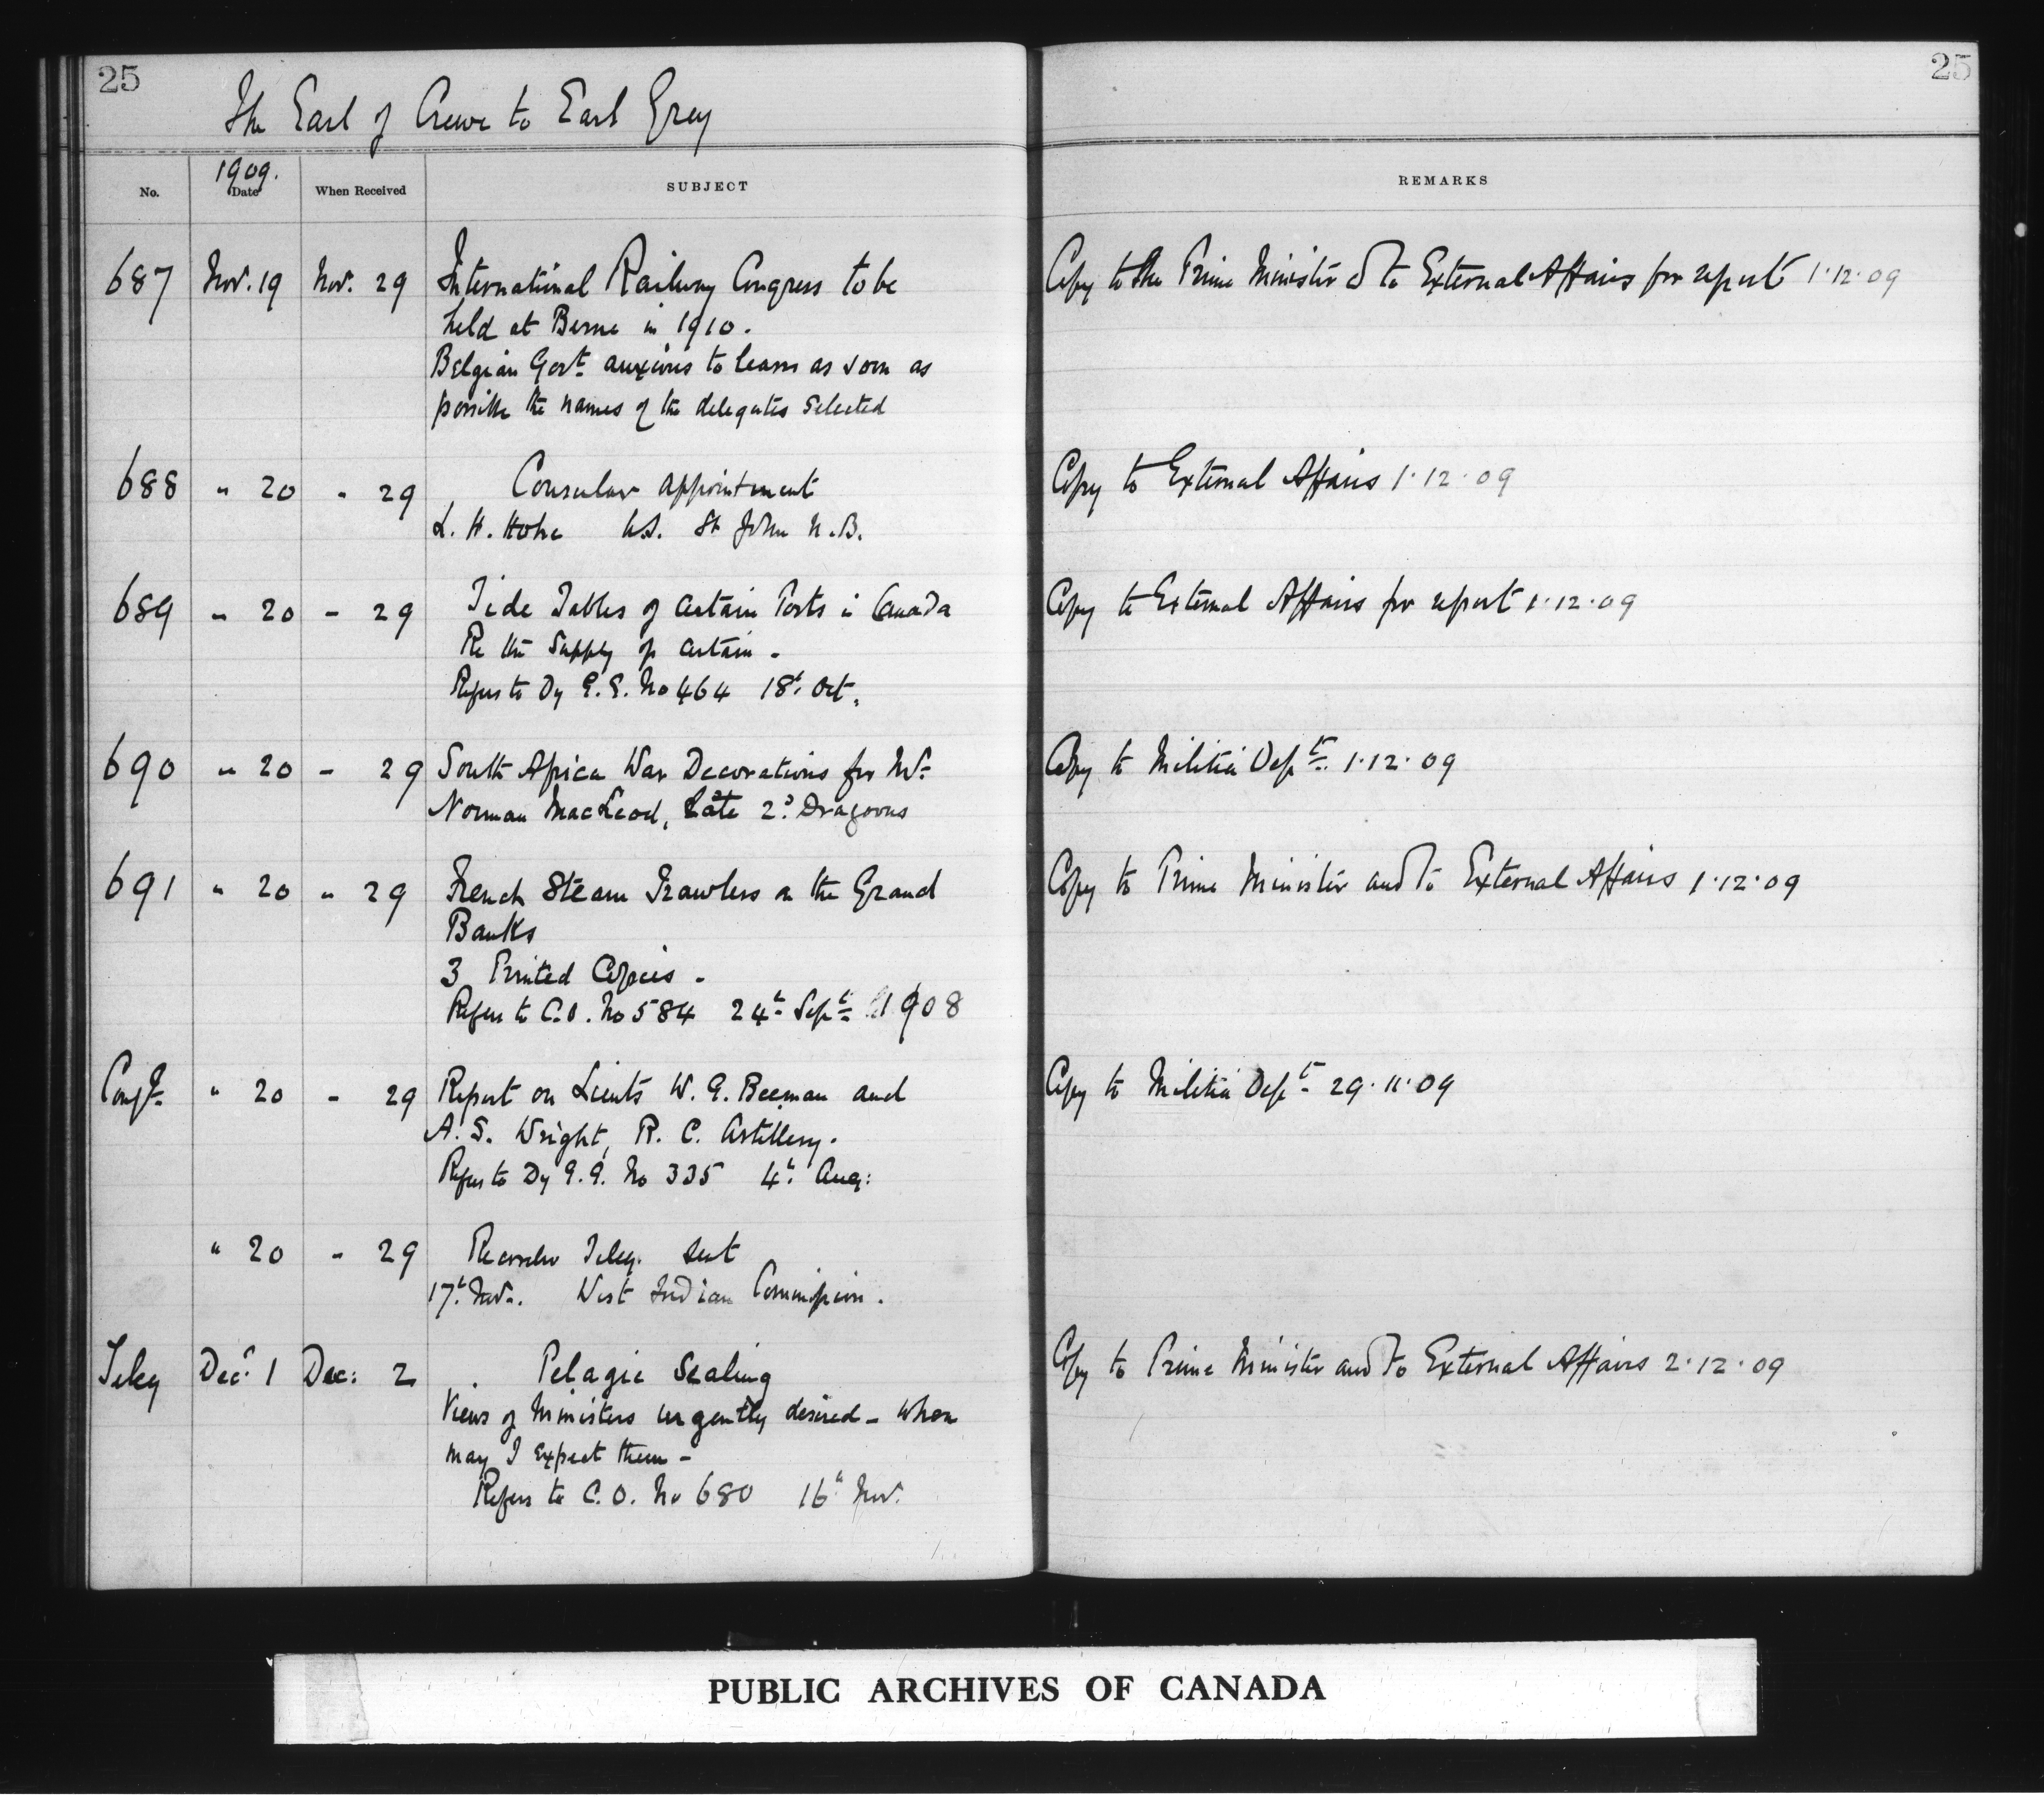 25
25
The Earl of Crewe to Earl Grey
1909.
No. Date When Received SUBJECT REMARKS
687 Nov. 19 Nov. 29 International Railway Congress to be Copy to the Prime Minister & to External Affairs for report 1.12.09
held at Berne in 1910.
Belgian Govt. anxious to learn as soon as
possible the names of the delegates selected
688 " 20 " 29 Consular appointment Copy to External Affairs 1.12.09
L. H. U.S. St John N.B.
689 " 20 - 29 Tide Tables of certain Ports in Canada Copy to External Affairs for report 1.12.09
Re the supply of certain -
Refers to Dy G.G. No 464 18th Oct.
690 " 20 - 29 South Africa War Decorations for Mr. Copy to Militia Dept. 1.12.09
Norman MacLeod, Late 2d Dragoons
691 " 20 " 29 French Steam Trawlers on the Grand Copy to Prime Minister and to External Affairs 1.12.09
Banks
3 Printed Copies -
Refers to C.O. No 584 24th Sept 1908
" 20 - 29 Report on Lieuts W. G. Beeman and Copy to Militia Dept 29.11.09
A. S. Wright, R. C. Artillery.
Refers to Dy G.G. No 335 4th Aug:
" 20 - 29 Teleg. sent
17th Nov. West Indian Commission.
Teleg Dec. 1 Dec: 2 Pelagic Sealing Copy to Prime Minister and to External Affairs 2.12.09
Views of Ministers urgently desired - when
may I expect them -
Refers to C.O. No 680 16th Nov.
PUBLIC ARCHIVES OF CANADA